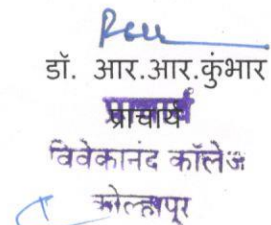 डॉ. आर.आर.कुंभार
प्राचार्य
विवेकानंद कॉलेज
कोल्हापूर